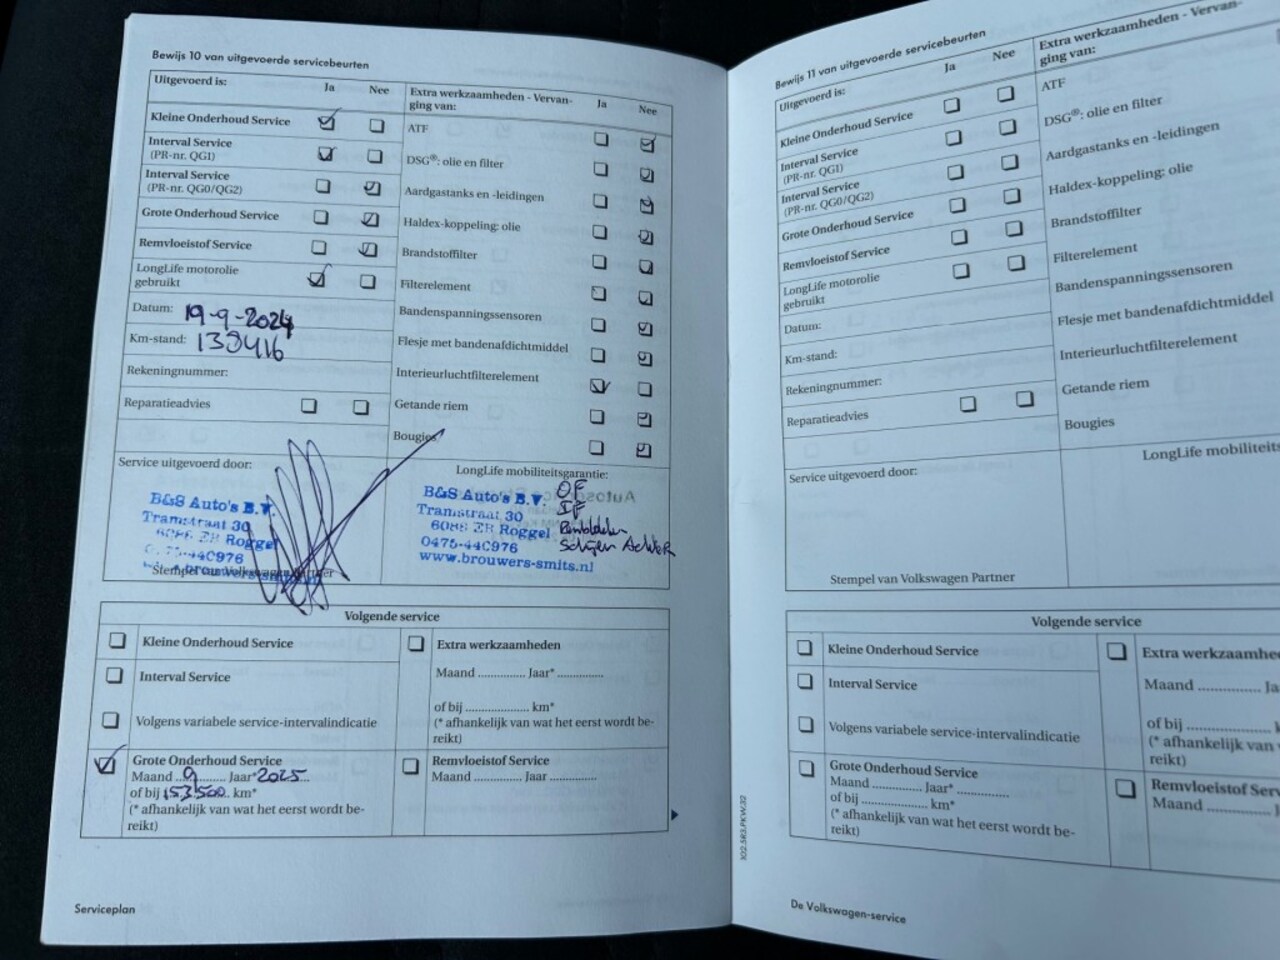 Bewijs 10 van uitgevoerde servicebeurten
Uitgevoerd is: Ja Nee
Kleine Onderhoud Service
Interval Service
(PR-nr. QG1)
Interval Service
(PR-nr. QG0/QG2)
Grote Onderhoud Service
Remvloeistof Service
LongLife motorolie
gebruikt
Datum: 19-9-2024
Km-stand: 139416
Rekeningnummer:
Reparatieadvies
Extra werkzaamheden - Vervan-
ging van: Ja Nee
ATF
DSG®: olie en filter
Aardgastanks en -leidingen
Haldex-koppeling: olie
Brandstoffilter
Filterelement
Bandenspanningssensoren
Flesje met bandenafdichtmiddel
Interieurluchtfilterelement
Getande riem
Bougies
Service uitgevoerd door:
B&S Auto's B.V.
Tramstraat 30
6088 ER Roggel
0475-440976
Stempel van Volkswagen Partner
LongLife mobiliteitsgarantie:
B&S Auto's B.V.
Tramstraat 30
6088 ER Roggel
0475-440976
www.brouwers-smits.nl
OF
IF
Volgende service
Kleine Onderhoud Service
Interval Service
Volgens variabele service-intervalindicatie
Grote Onderhoud Service
Maand 9 Jaar* 2025
of bij 153500 km*
(* afhankelijk van wat het eerst wordt be-
reikt)
Extra werkzaamheden
Maand .............. Jaar* ..............
of bij ................... km*
(* afhankelijk van wat het eerst wordt be-
reikt)
Remvloeistof Service
Maand .............. Jaar ..............
Serviceplan
Bewijs 11 van uitgevoerde servicebeurten
Uitgevoerd is: Ja Nee
Kleine Onderhoud Service
Interval Service
(PR-nr. QG1)
Interval Service
(PR-nr. QG0/QG2)
Grote Onderhoud Service
Remvloeistof Service
LongLife motorolie
gebruikt
Datum:
Km-stand:
Rekeningnummer:
Reparatieadvies
Extra werkzaamheden - Vervan-
ging van:
ATF
DSG®: olie en filter
Aardgastanks en -leidingen
Haldex-koppeling: olie
Brandstoffilter
Filterelement
Bandenspanningssensoren
Flesje met bandenafdichtmiddel
Interieurluchtfilterelement
Getande riem
Bougies
Service uitgevoerd door:
Stempel van Volkswagen Partner
LongLife mobiliteits
Volgende service
Kleine Onderhoud Service
Interval Service
Volgens variabele service-intervalindicatie
Grote Onderhoud Service
Maand .............. Jaar* ..............
of bij ................... km*
(* afhankelijk van wat het eerst wordt be-
reikt)
Extra werkzaamhe
Maand .............. Ja
of bij ................... k
(* afhankelijk van
reikt)
Remvloeistof Serv
Maand ..............
102.5R3.PKW.32
De Volkswagen-service